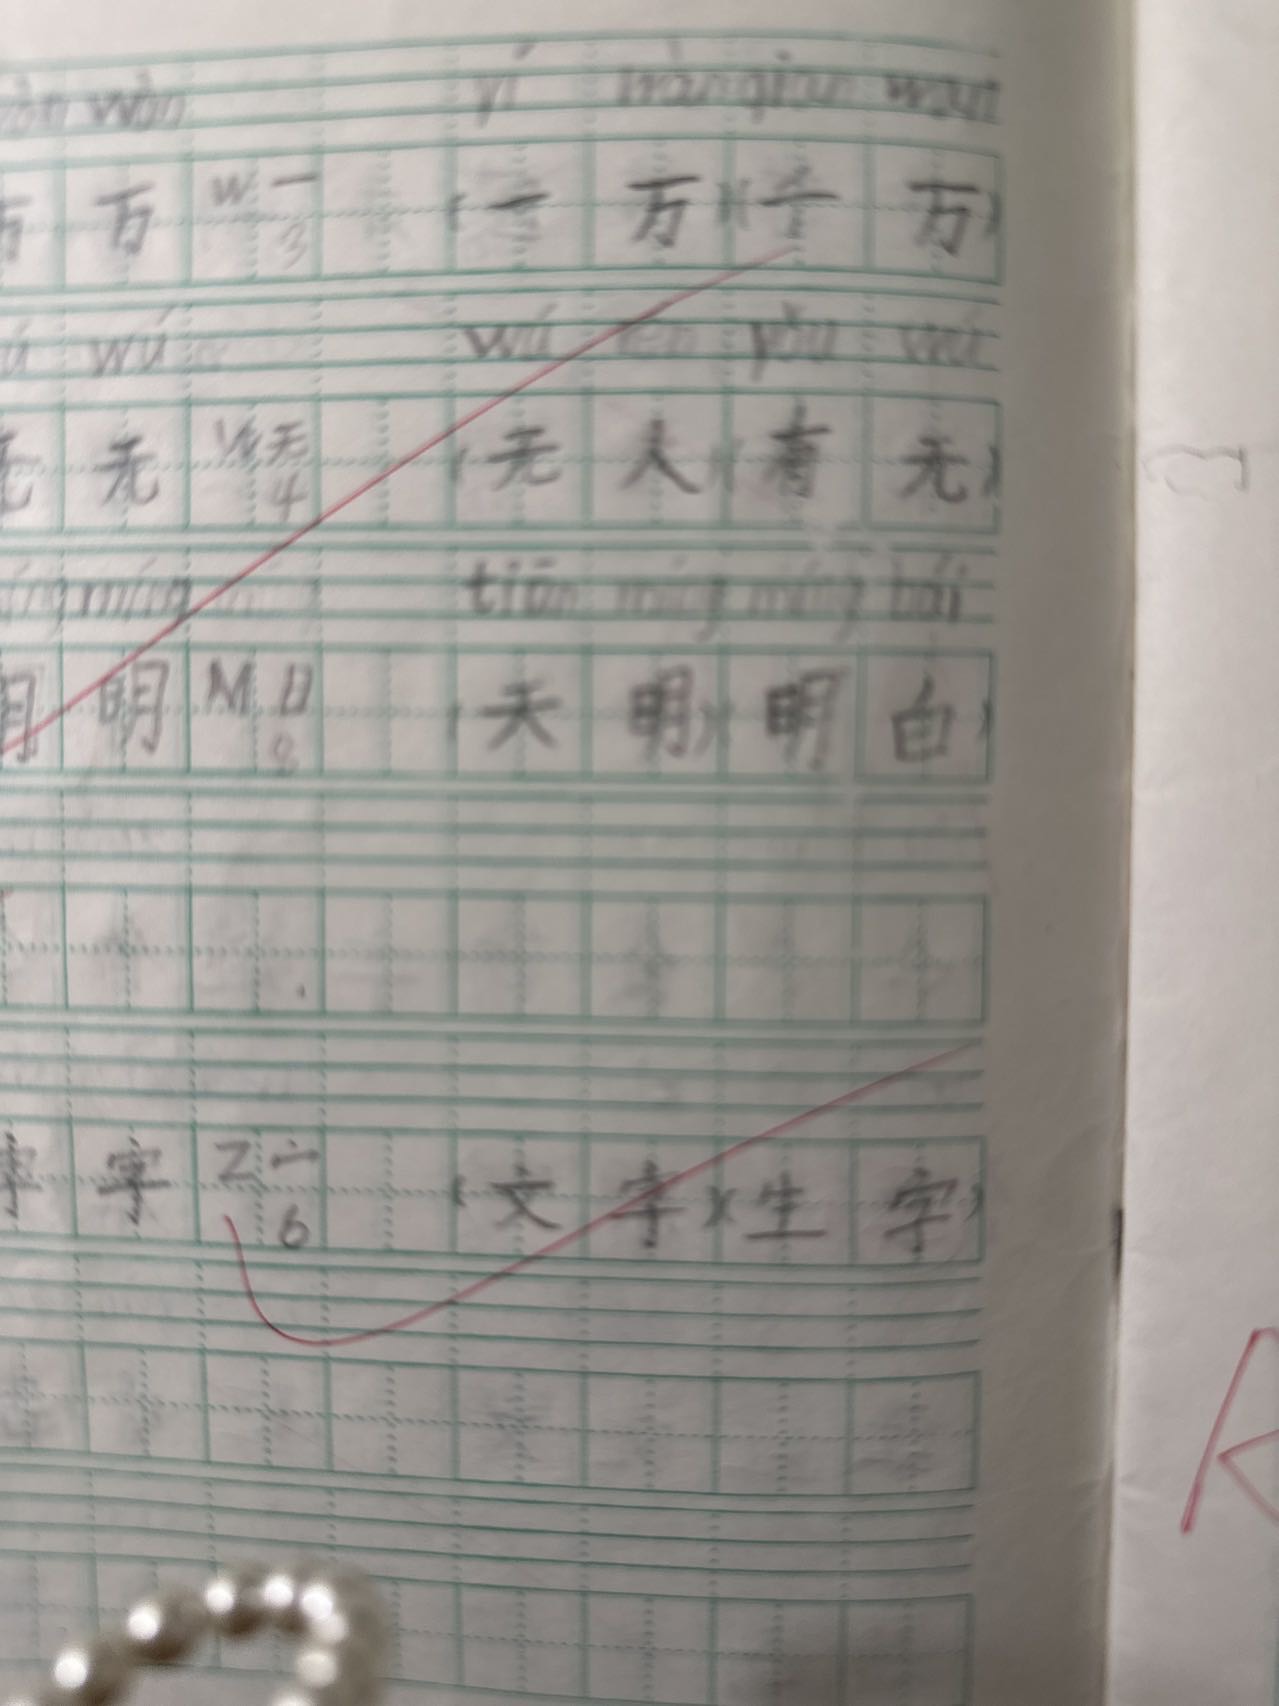 wàn yí wàn qiān wàn
万 W 一 3 (一 万)(千 万)
wú wú rén yǒu wú
无 W 无 4 (无 人)(有 无)
míng tiān míng míng bái
明 明 M 日 8 (天 明)(明 白)
字 字 Z 宀 6 (文 字)(生 字)